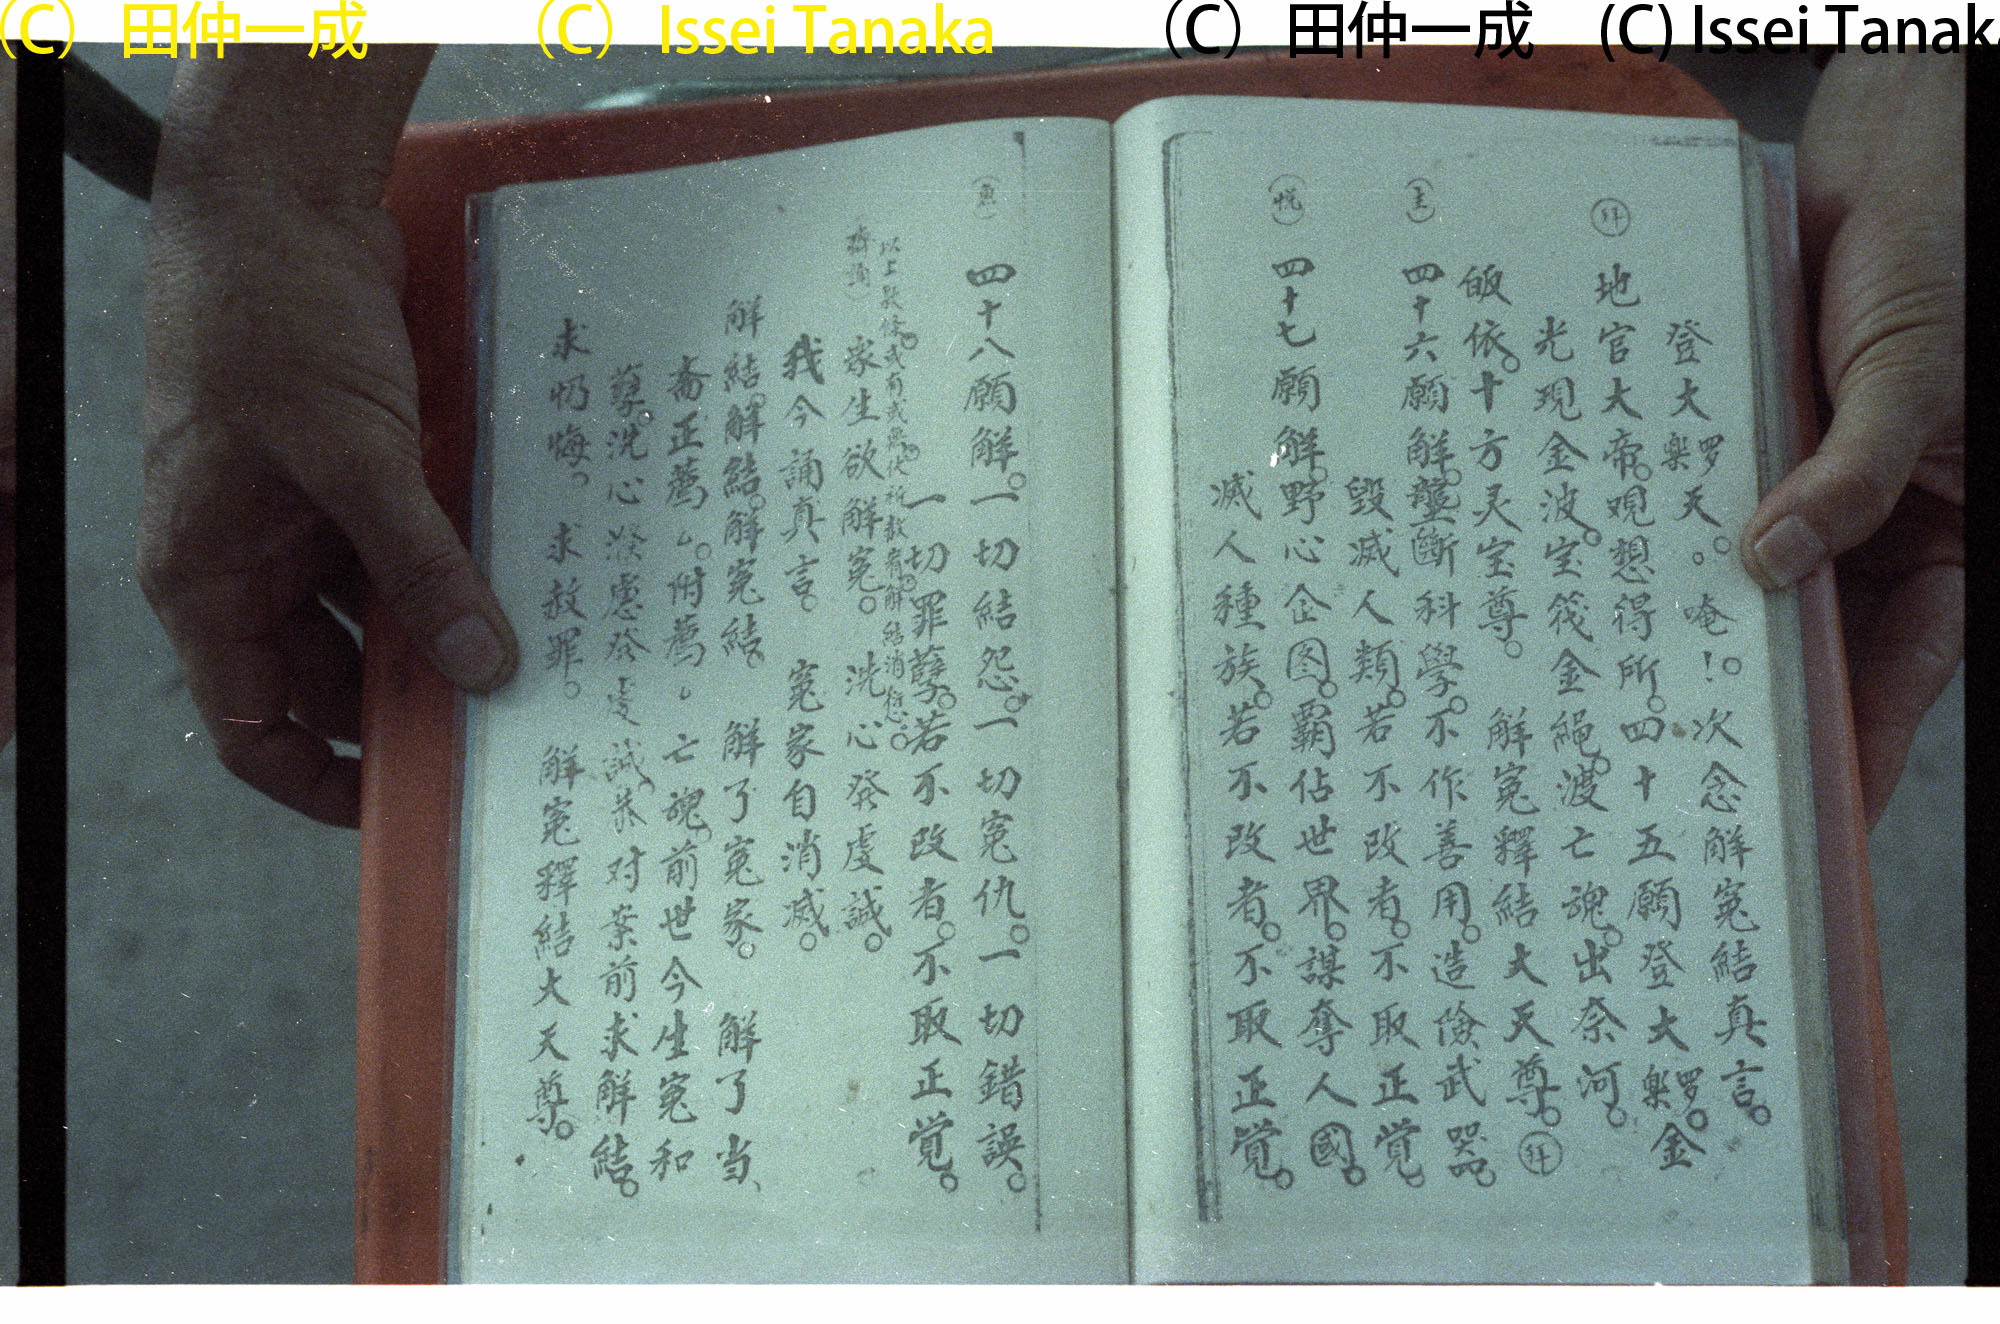 (C) 田仲一成 (C) Issei Tanaka (C) 田仲一成 (C) Issei Tanaka
登大罗樂天。。唵！。次念解寃結真言。
地官大帝。观想得所。四十五願登大罗樂。金
光現金波。宝筏金繩。渡亡魂。出奈河。
皈依。十方灵宝尊。 解寃釋結大天尊。
(主) 四十六願解。壟斷科學。不作善用。造險武器。
毀滅人類。若不改者。不取正覚。
(悦) 四十七願解。野心企图。霸佔世界。謀奪人國。
滅人種族。若不改者。不取正覚。
(魚) 四十八願解。一切結怨。一切寃仇。一切錯誤。
一切罪孽。若不改者。不取正覚。
以上数條。或有或無。代祈赦宥。解結消愆。
齊誦)
眾生欲解寃。洗心發虔誠。
我今誦真言。 寃家自消滅。
解結。解結。解寃結。 解了寃家。 解了当、
齋正薦。附薦。亡魂。前世今生寃和
孽。洗心滌慮發虔誠。恭对案前求解結。
求忏悔。 求赦罪。 解寃釋結大天尊。